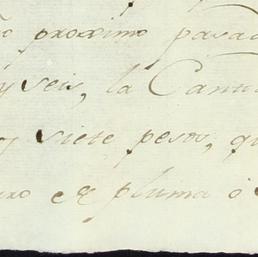 ño proximo pasad
y seis, la Canti
y siete pesos, qu
pluma ó